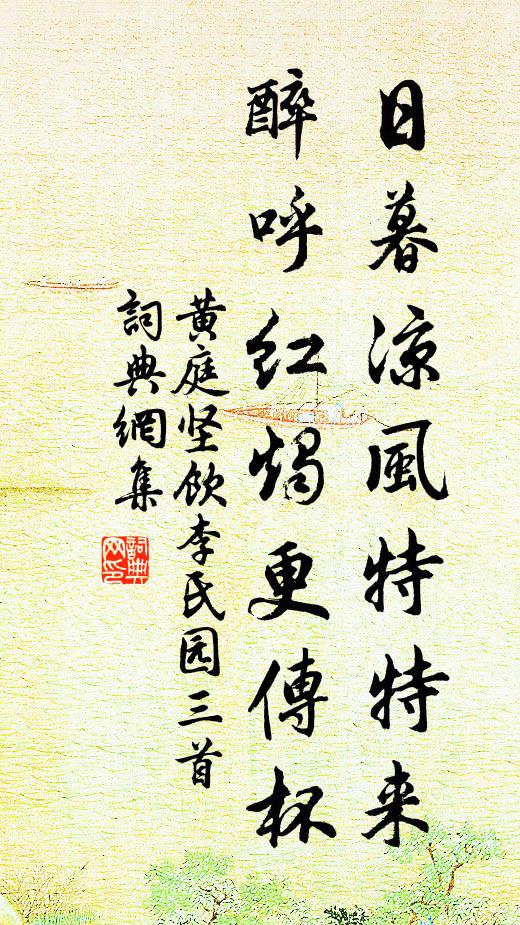 日暮凉風特特来
醉呼红燭更傳杯
黄庭坚飲李氏园三首
詞典網集
詞典
网印